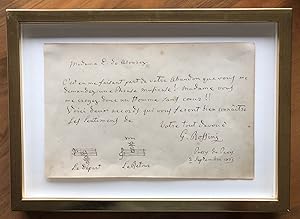 Madame E. de
C'est en me faisant part de votre Abandon que vous me
demandez une Phrase Musicale! Madame vous
me croyez donc un Homme sans cœur!!
Voici deux accords qui vous feront bien connaître
Les Sentiments de
Votre tout dévoué
G. Rossini
Passy de Paris
2 Septembre
Le Départ
Le Retour